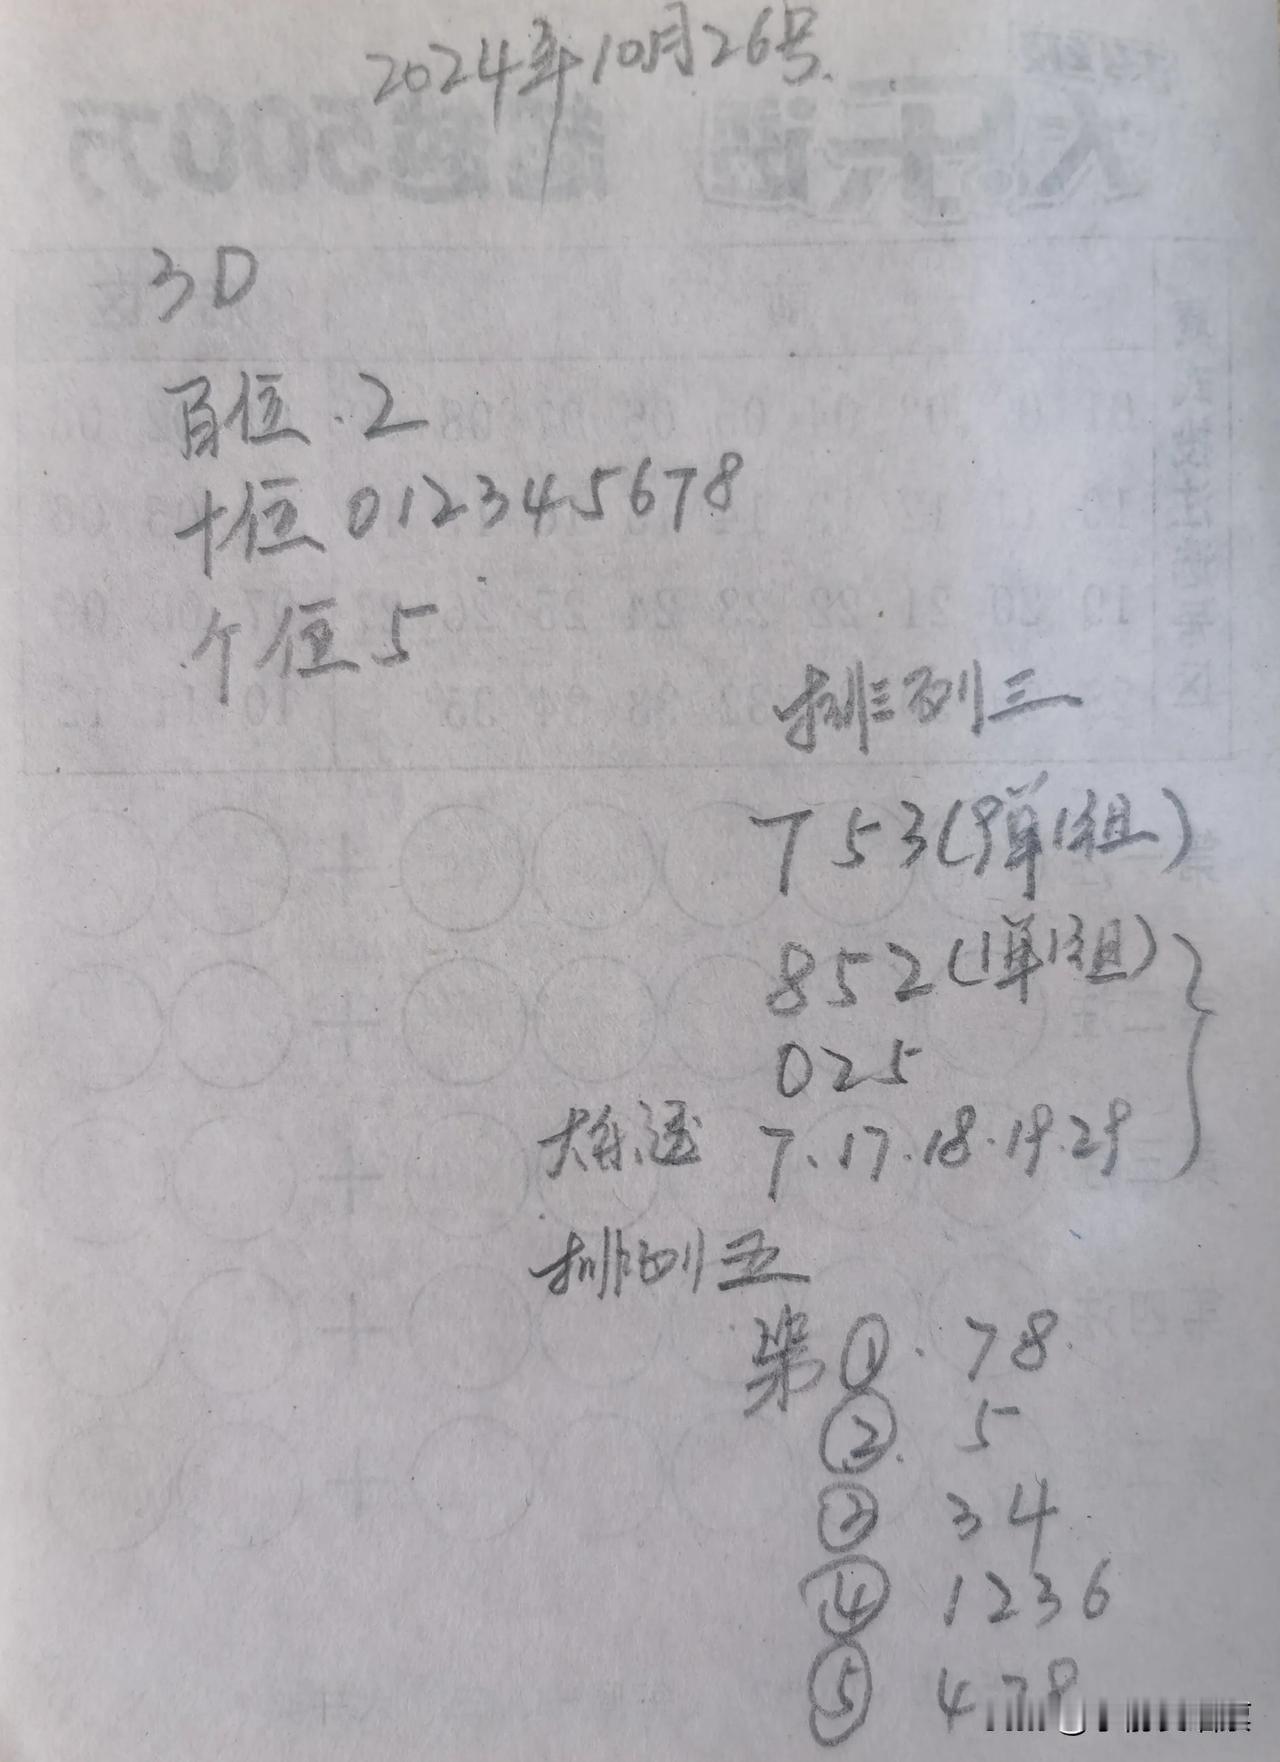 2024年10月26号.
3D
百位.2
十位 012345678
个位 5
排列三
753(9单1组)
852(1单1组)
025
大乐透 7.17.18.19.29
排列五
第①.78.
②. 5
③ 34
④ 1236
⑤ 478